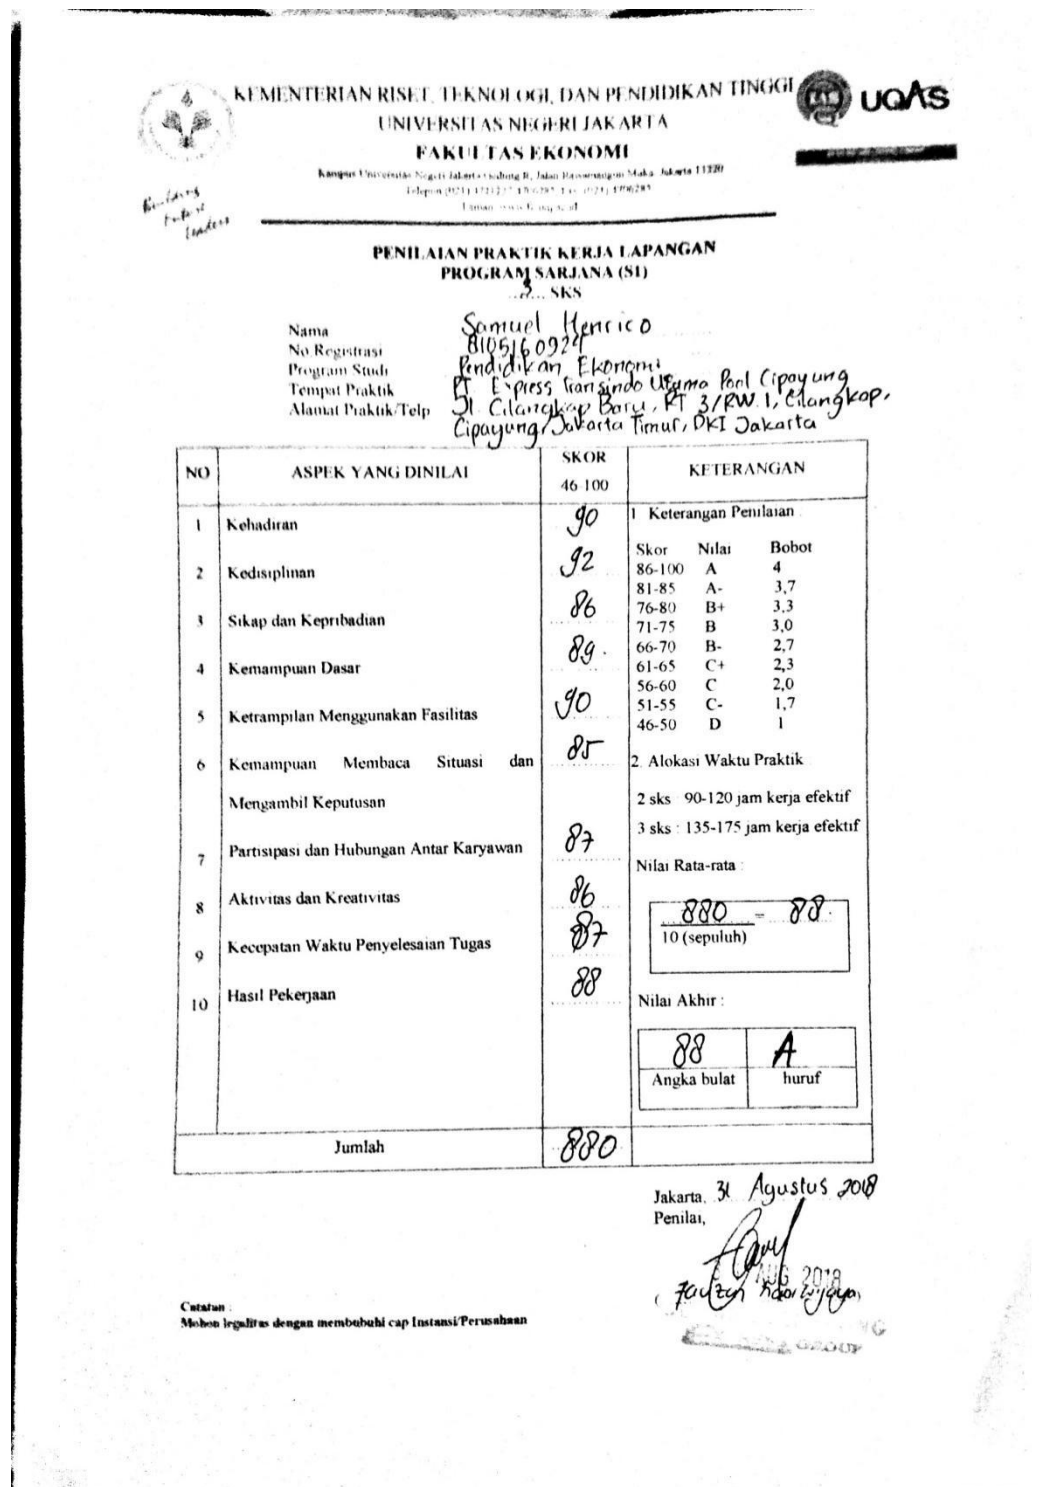 KEMENTERIAN RISET, TEKNOLOGI, DAN PENDIDIKAN TINGGI
UNIVERSITAS NEGERI JAKARTA
FAKULTAS EKONOMI
Kampus Universitas Negeri Jakarta Gedung R, Jalan Rawamangun Muka, Jakarta 13220
UQAS
Building
Future
Leaders
PENILAIAN PRAKTIK KERJA LAPANGAN
PROGRAM SARJANA (S1)
3 SKS
Nama Samuel Henrico
No Registrasi 8105160924
Program Studi Pendidikan Ekonomi
Tempat Praktik PT. Express Transindo Utama Pool Cipayung
Alamat Praktik/Telp Jl. Cilangkap Baru, RT 3/RW.1, Cilangkap,
Cipayung, Jakarta Timur, DKI Jakarta
NO ASPEK YANG DINILAI SKOR 46-100 KETERANGAN
1 Kehadiran 90
2 Kedisiplinan 92
3 Sikap dan Kepribadian 86
4 Kemampuan Dasar 89
5 Ketrampilan Menggunakan Fasilitas 90
6 Kemampuan Membaca Situasi dan 85
Mengambil Keputusan
7 Partisipasi dan Hubungan Antar Karyawan 87
8 Aktivitas dan Kreativitas 86
9 Kecepatan Waktu Penyelesaian Tugas 87
10 Hasil Pekerjaan 88
1 Keterangan Penilaian :
Skor Nilai Bobot
86-100 A 4
81-85 A- 3,7
76-80 B+ 3,3
71-75 B 3,0
66-70 B- 2,7
61-65 C+ 2,3
56-60 C 2,0
51-55 C- 1,7
46-50 D 1
2. Alokasi Waktu Praktik
2 sks : 90-120 jam kerja efektif
3 sks : 135-175 jam kerja efektif
Nilai Rata-rata :
880 = 88
10 (sepuluh)
Nilai Akhir :
88 A
Angka bulat huruf
Jumlah 880
Jakarta, 31 Agustus 2018
Penilai,
AUG 2018
GROUP
Catatan :
Mohon legalitas dengan membubuhi cap Instansi/Perusahaan